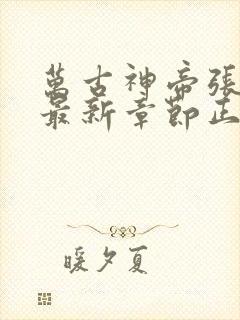 萬古神帝張
最新章節正
暖夕夏